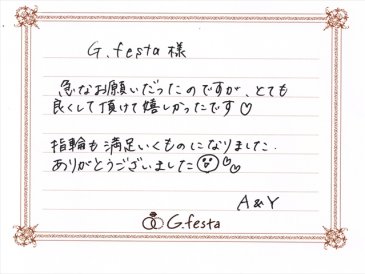 G.festa 様
急なお願いだったのですが、とても
良くして頂けて嬉しかったです♡
指輪も満足いくものになりました.
ありがとうございました
A & Y
G.festa